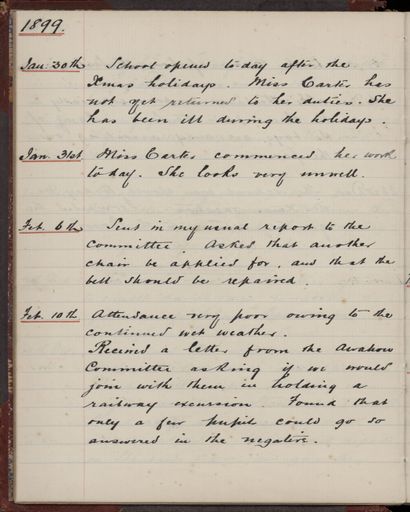 1899.
Jan 30th School opened to day after the
Xmas holidays. Miss Carter has
not yet returned to her duties. She
has been ill during the holidays.
Jan. 31st Miss Carter commenced her work
to-day. She looks very unwell.
Feb. 6th Sent in my usual report to the
Committee. Asked that another
chair be applied for, and that the
bell should be repaired.
Feb. 10th Attendance very poor owing to the
continued wet weather.
Received a letter from the Awahou
Committee asking if we would
join with them in holding a
railway excursion. Found that
only a few pupil could go so
answered in the negative.